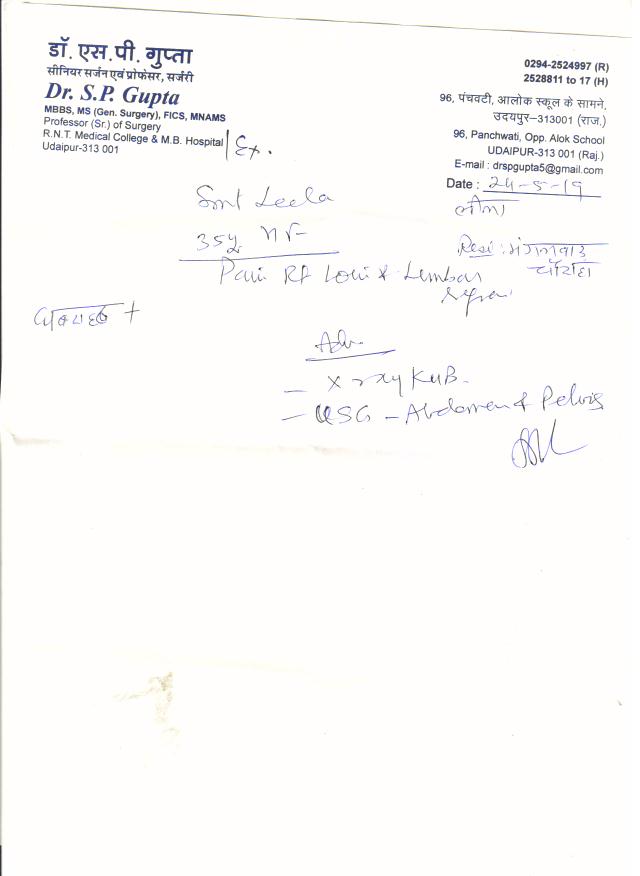 डॉ. एस.पी. गुप्ता
सीनियर सर्जन एवं प्रोफेसर, सर्जरी
Dr. S.P. Gupta
MBBS, MS (Gen. Surgery), FICS, MNAMS
Professor (Sr.) of Surgery
R.N.T. Medical College & M.B. Hospital
Udaipur-313 001
Ex.
0294-2524997 (R)
2528811 to 17 (H)
96, पंचवटी, आलोक स्कूल के सामने,
उदयपुर–313001 (राज.)
96, Panchwati, Opp. Alok School
UDAIPUR-313 001 (Raj.)
E-mail : drspgupta5@gmail.com
Date : 24-5-19
Smt Leela
लीला
35y
Resi : मंगलवाड़
चौराहा
Pain Rt Loin & Lumbar
घबराहट +
Adv.
– X ray KUB.
– USG – Abdomen & Pelvis